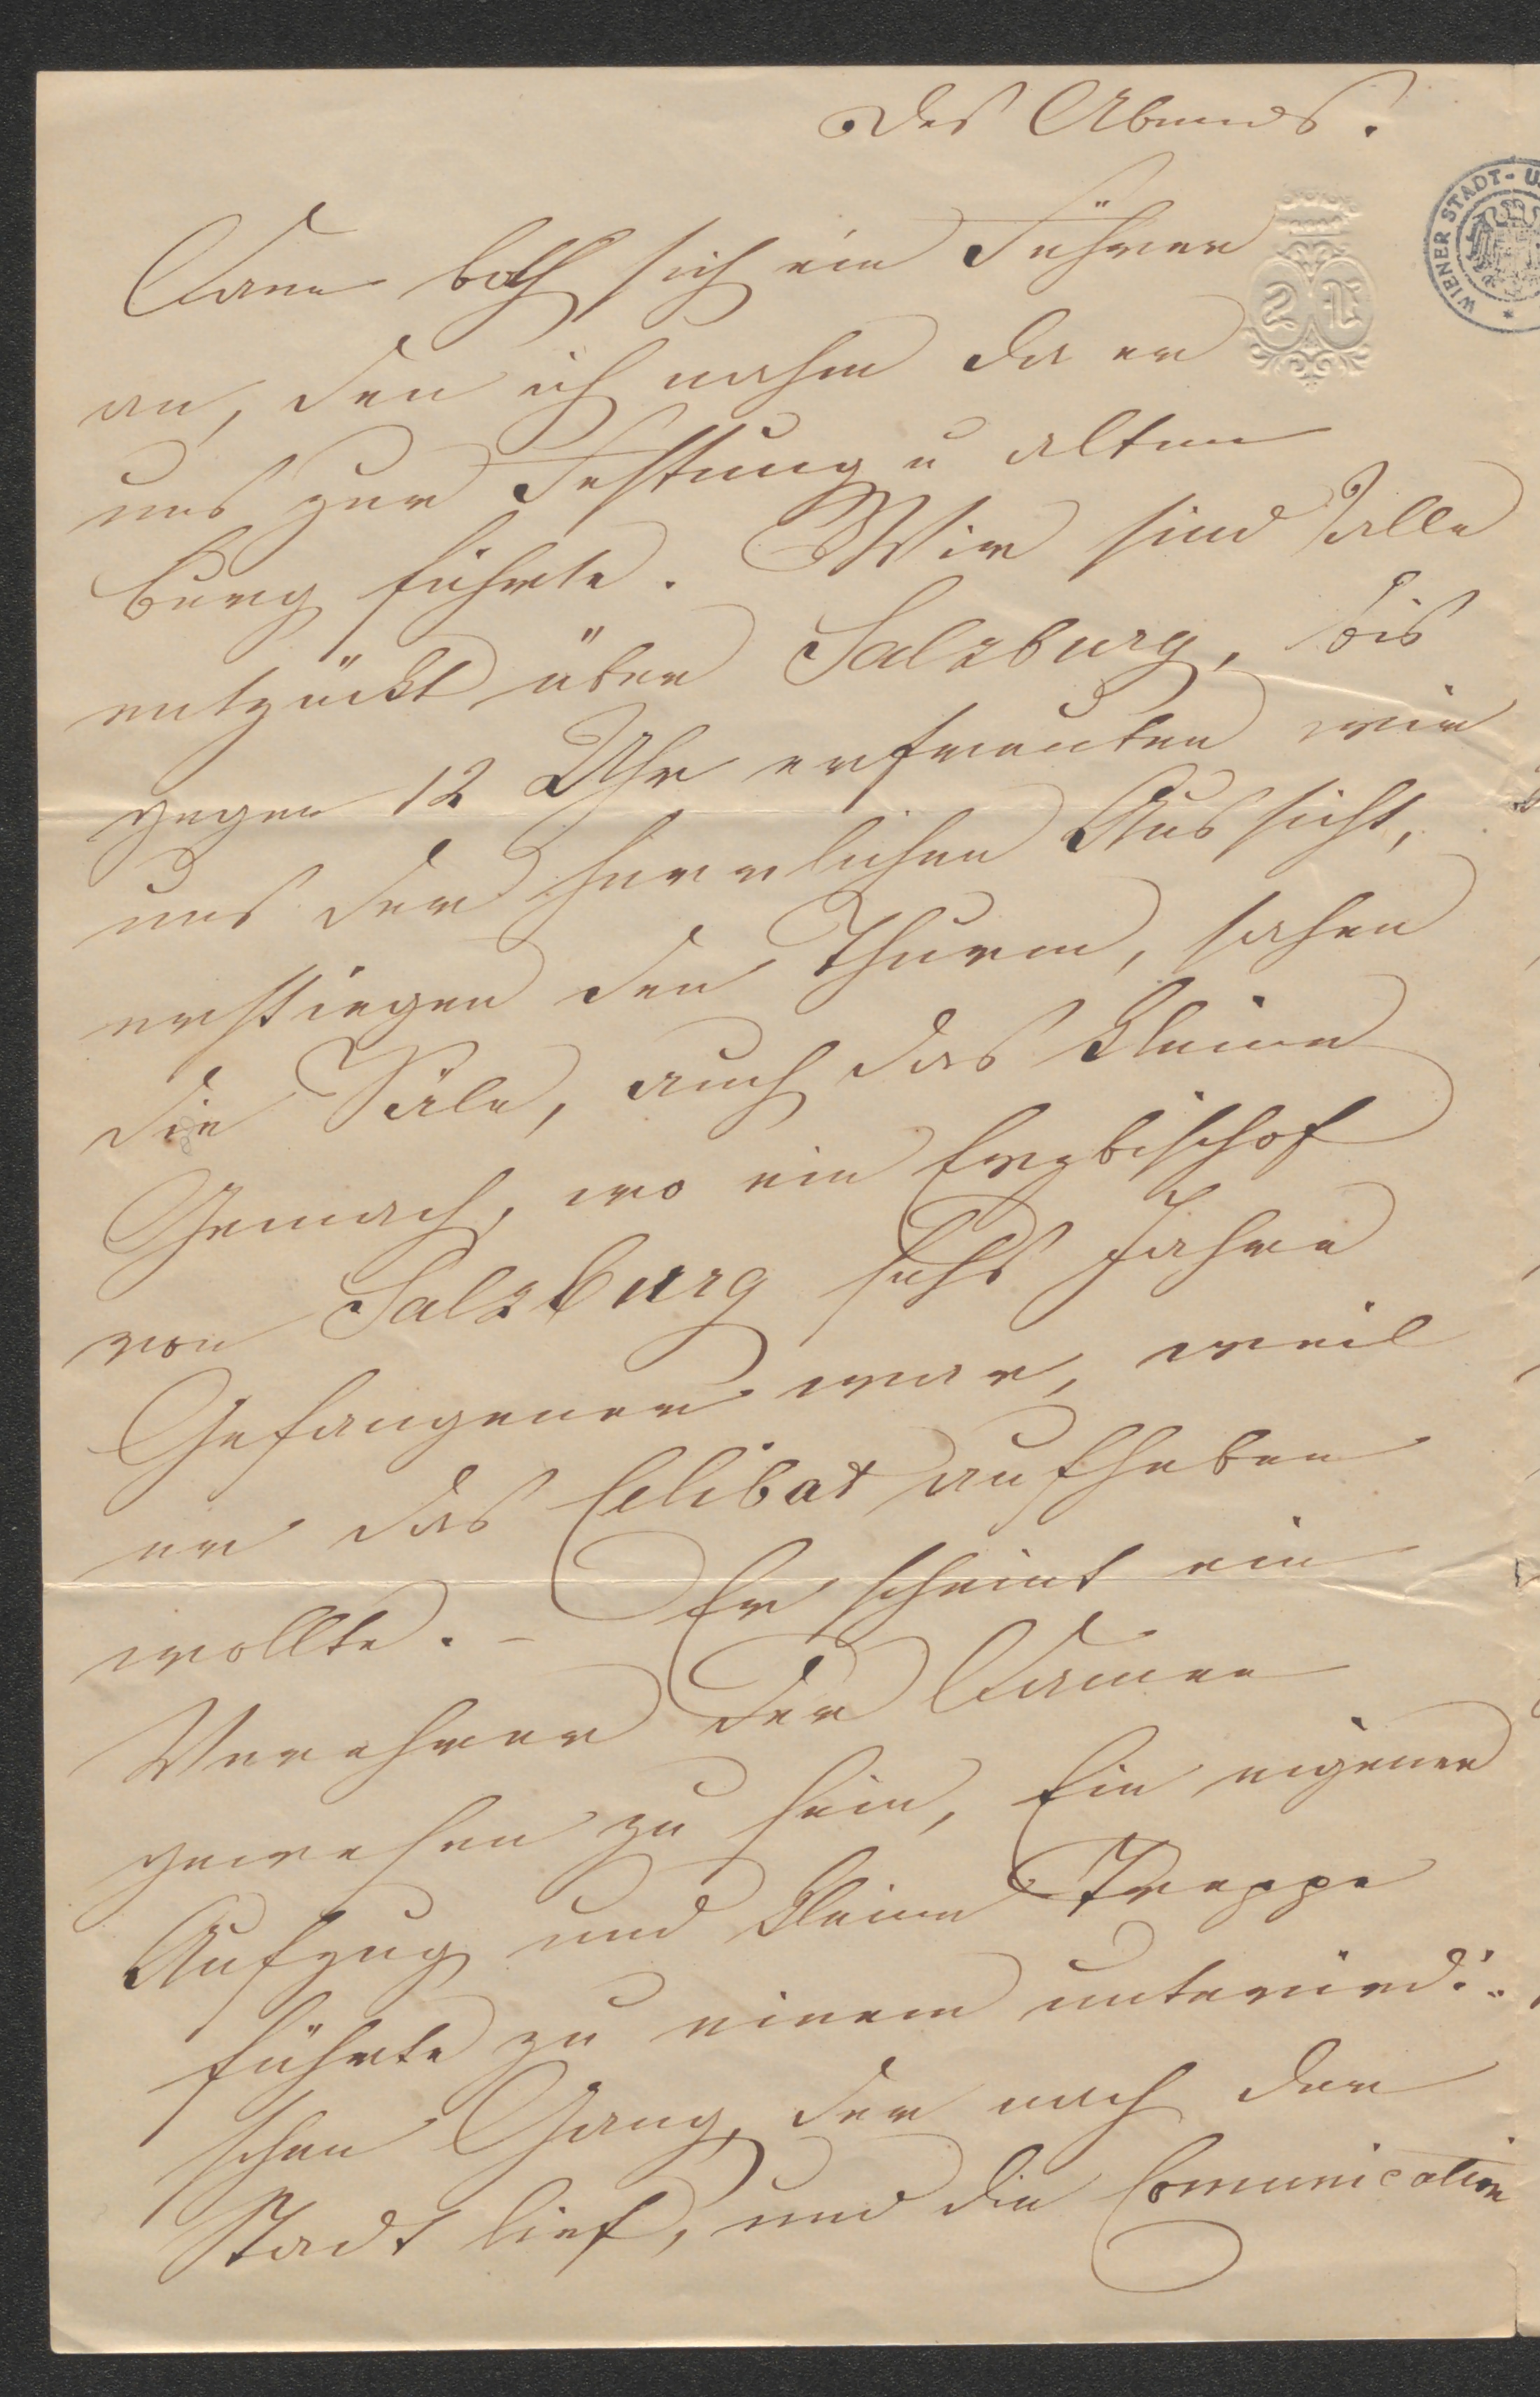 des Abends.
Dann both sich ein Führer
an, den ich nahm da er
uns zur Festung u alten
Burg führte. Wir sind alle
entzückt über Salzburg, bis
gegen 12 Uhr erfreuten wir
uns der herrlichen Aussicht,
erstiegen den Thurm, sahen
die Säle, auch das kleine
Gemach, wo ein Erzbischof
von Salzburg sechs Jahre
Gefangener war, weil
er das Celibat aufheben
wollte. – Er scheint ein
Verehrer der Damen
gewesen zu sein, Ein eigener
Aufzug und kleine Treppe
führte zu einem unterird:
schen Gang, der nach der
Stadt lief, und die Comunication
WIENER STADT-U